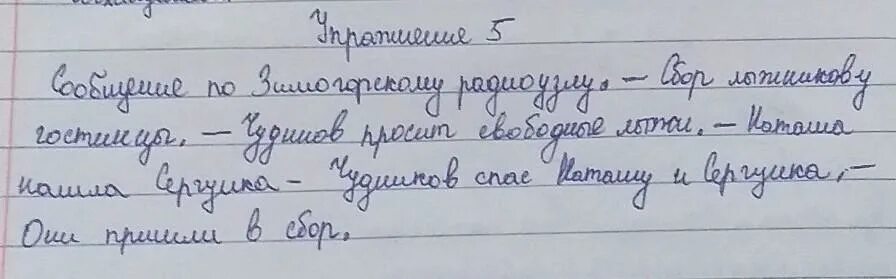 Упражнение 5
Сообщение по Зимогорскому радиоузлу. – Сбор лыжников у
гостинцы. – Чудинов просит свободные лыжи. – Наташа
нашла Сергушка – Чудинков спас Наташу и Сергушка, –
Они пришли в сбор.